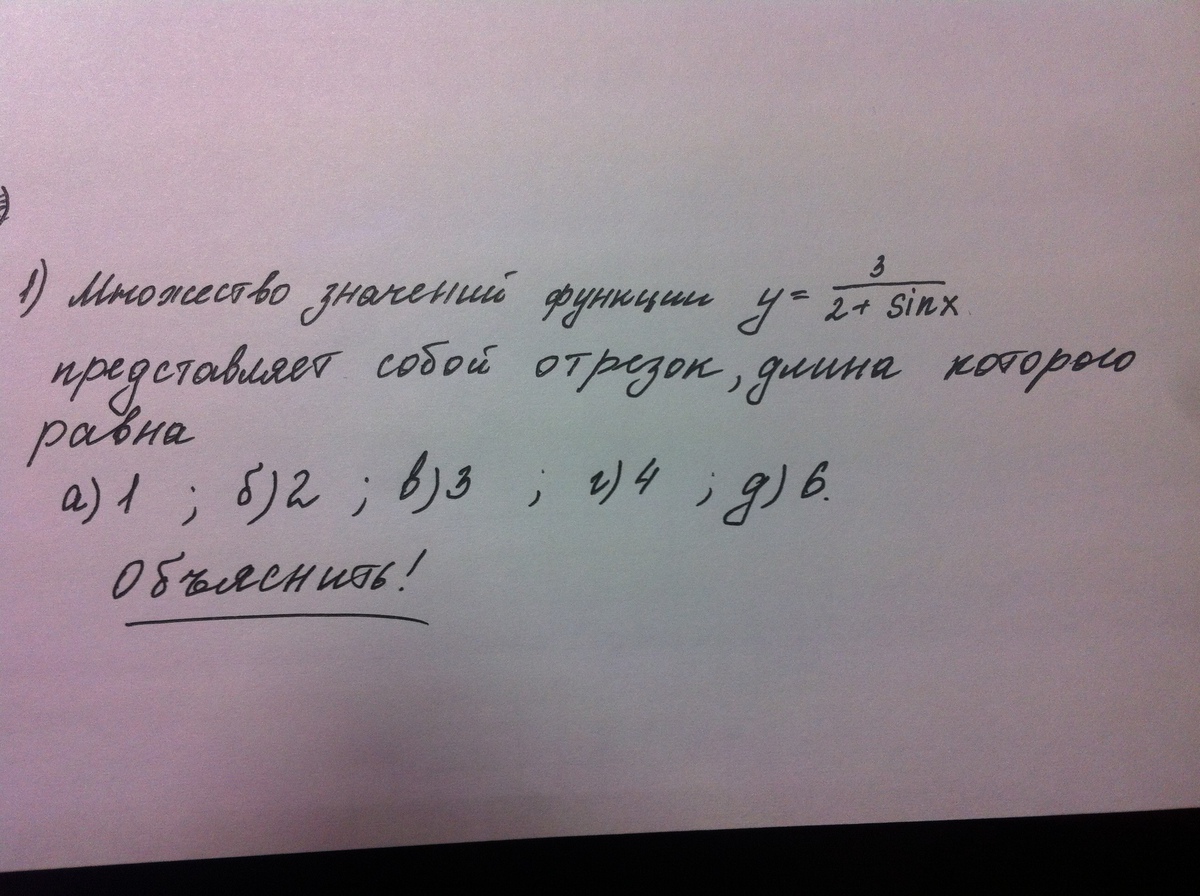 1) Множество значений функции y = 3/(2 + sinx)
представляет собой отрезок, длина которого
равна
а) 1 ; б) 2 ; в) 3 ; г) 4 ; д) 6.
Объяснить!